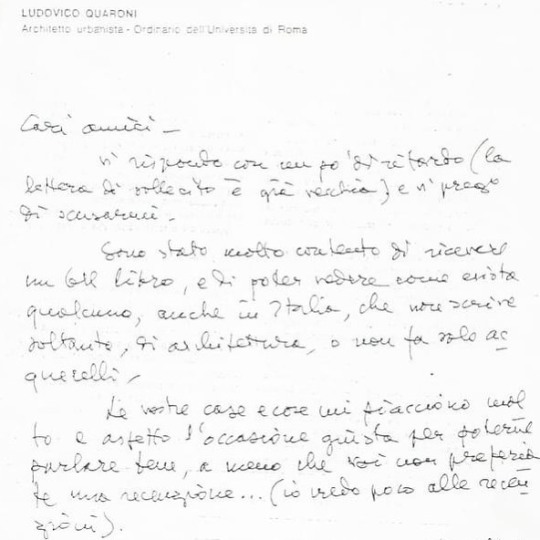 LUDOVICO QUARONI
Architetto urbanista - Ordinario dell'Università di Roma
Cari amici -
vi rispondo con un po' di ritardo (la
lettera di sollecito è già vecchia) e vi prego
di scusarmi -
Sono stato molto contento di ricevere
un bel libro, e di poter vedere come esista
qualcuno, anche in Italia, che non scrive
soltanto, di architettura, o non fa solo ac
querelli -
Le vostre case ecore mi piacciono mol
to e aspetto l'occasione giusta per poterne
parlare bene, a meno che voi non preferia
te una recenzione... (io credo poco alle recen
zioni).